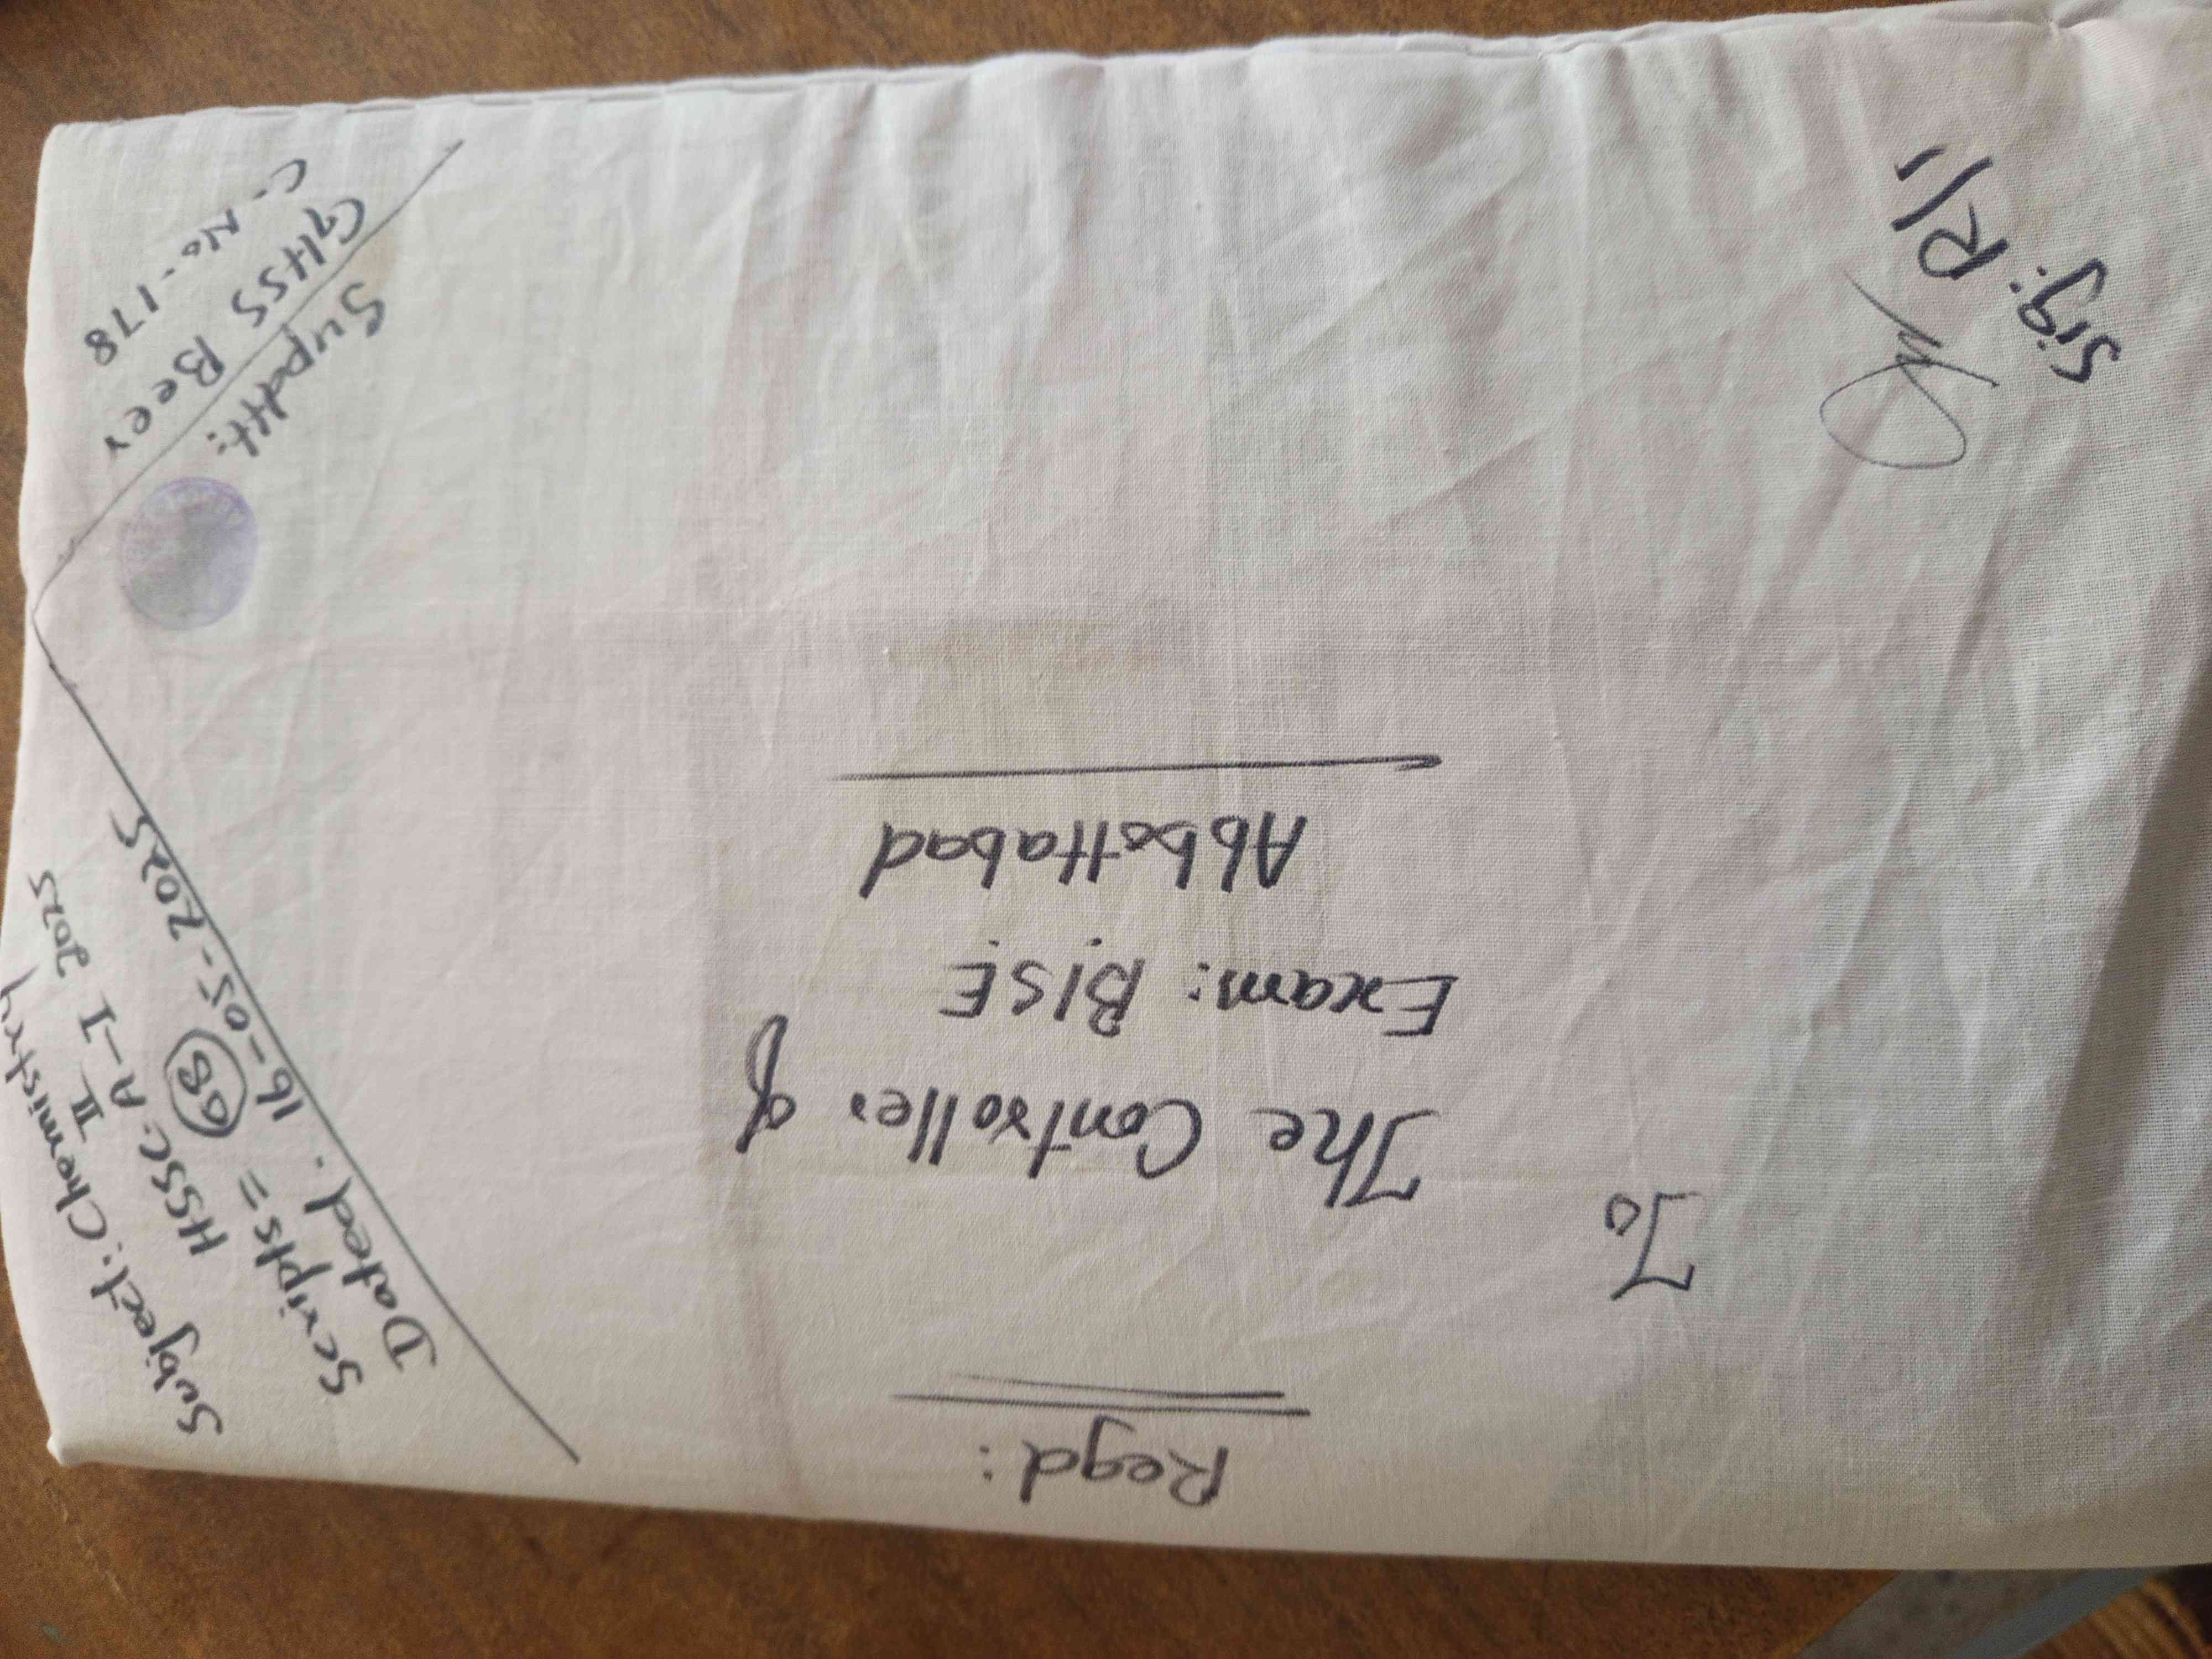 Regd:
To
The Controller of
Exam: BISE
Abbottabad
Sig: R/I
Supdtt:
GHSS Beer
C-No-178
Dated. 16-05-2025
Scripts = 68
HSSC A-I 2025
II
Subject: Chemistry